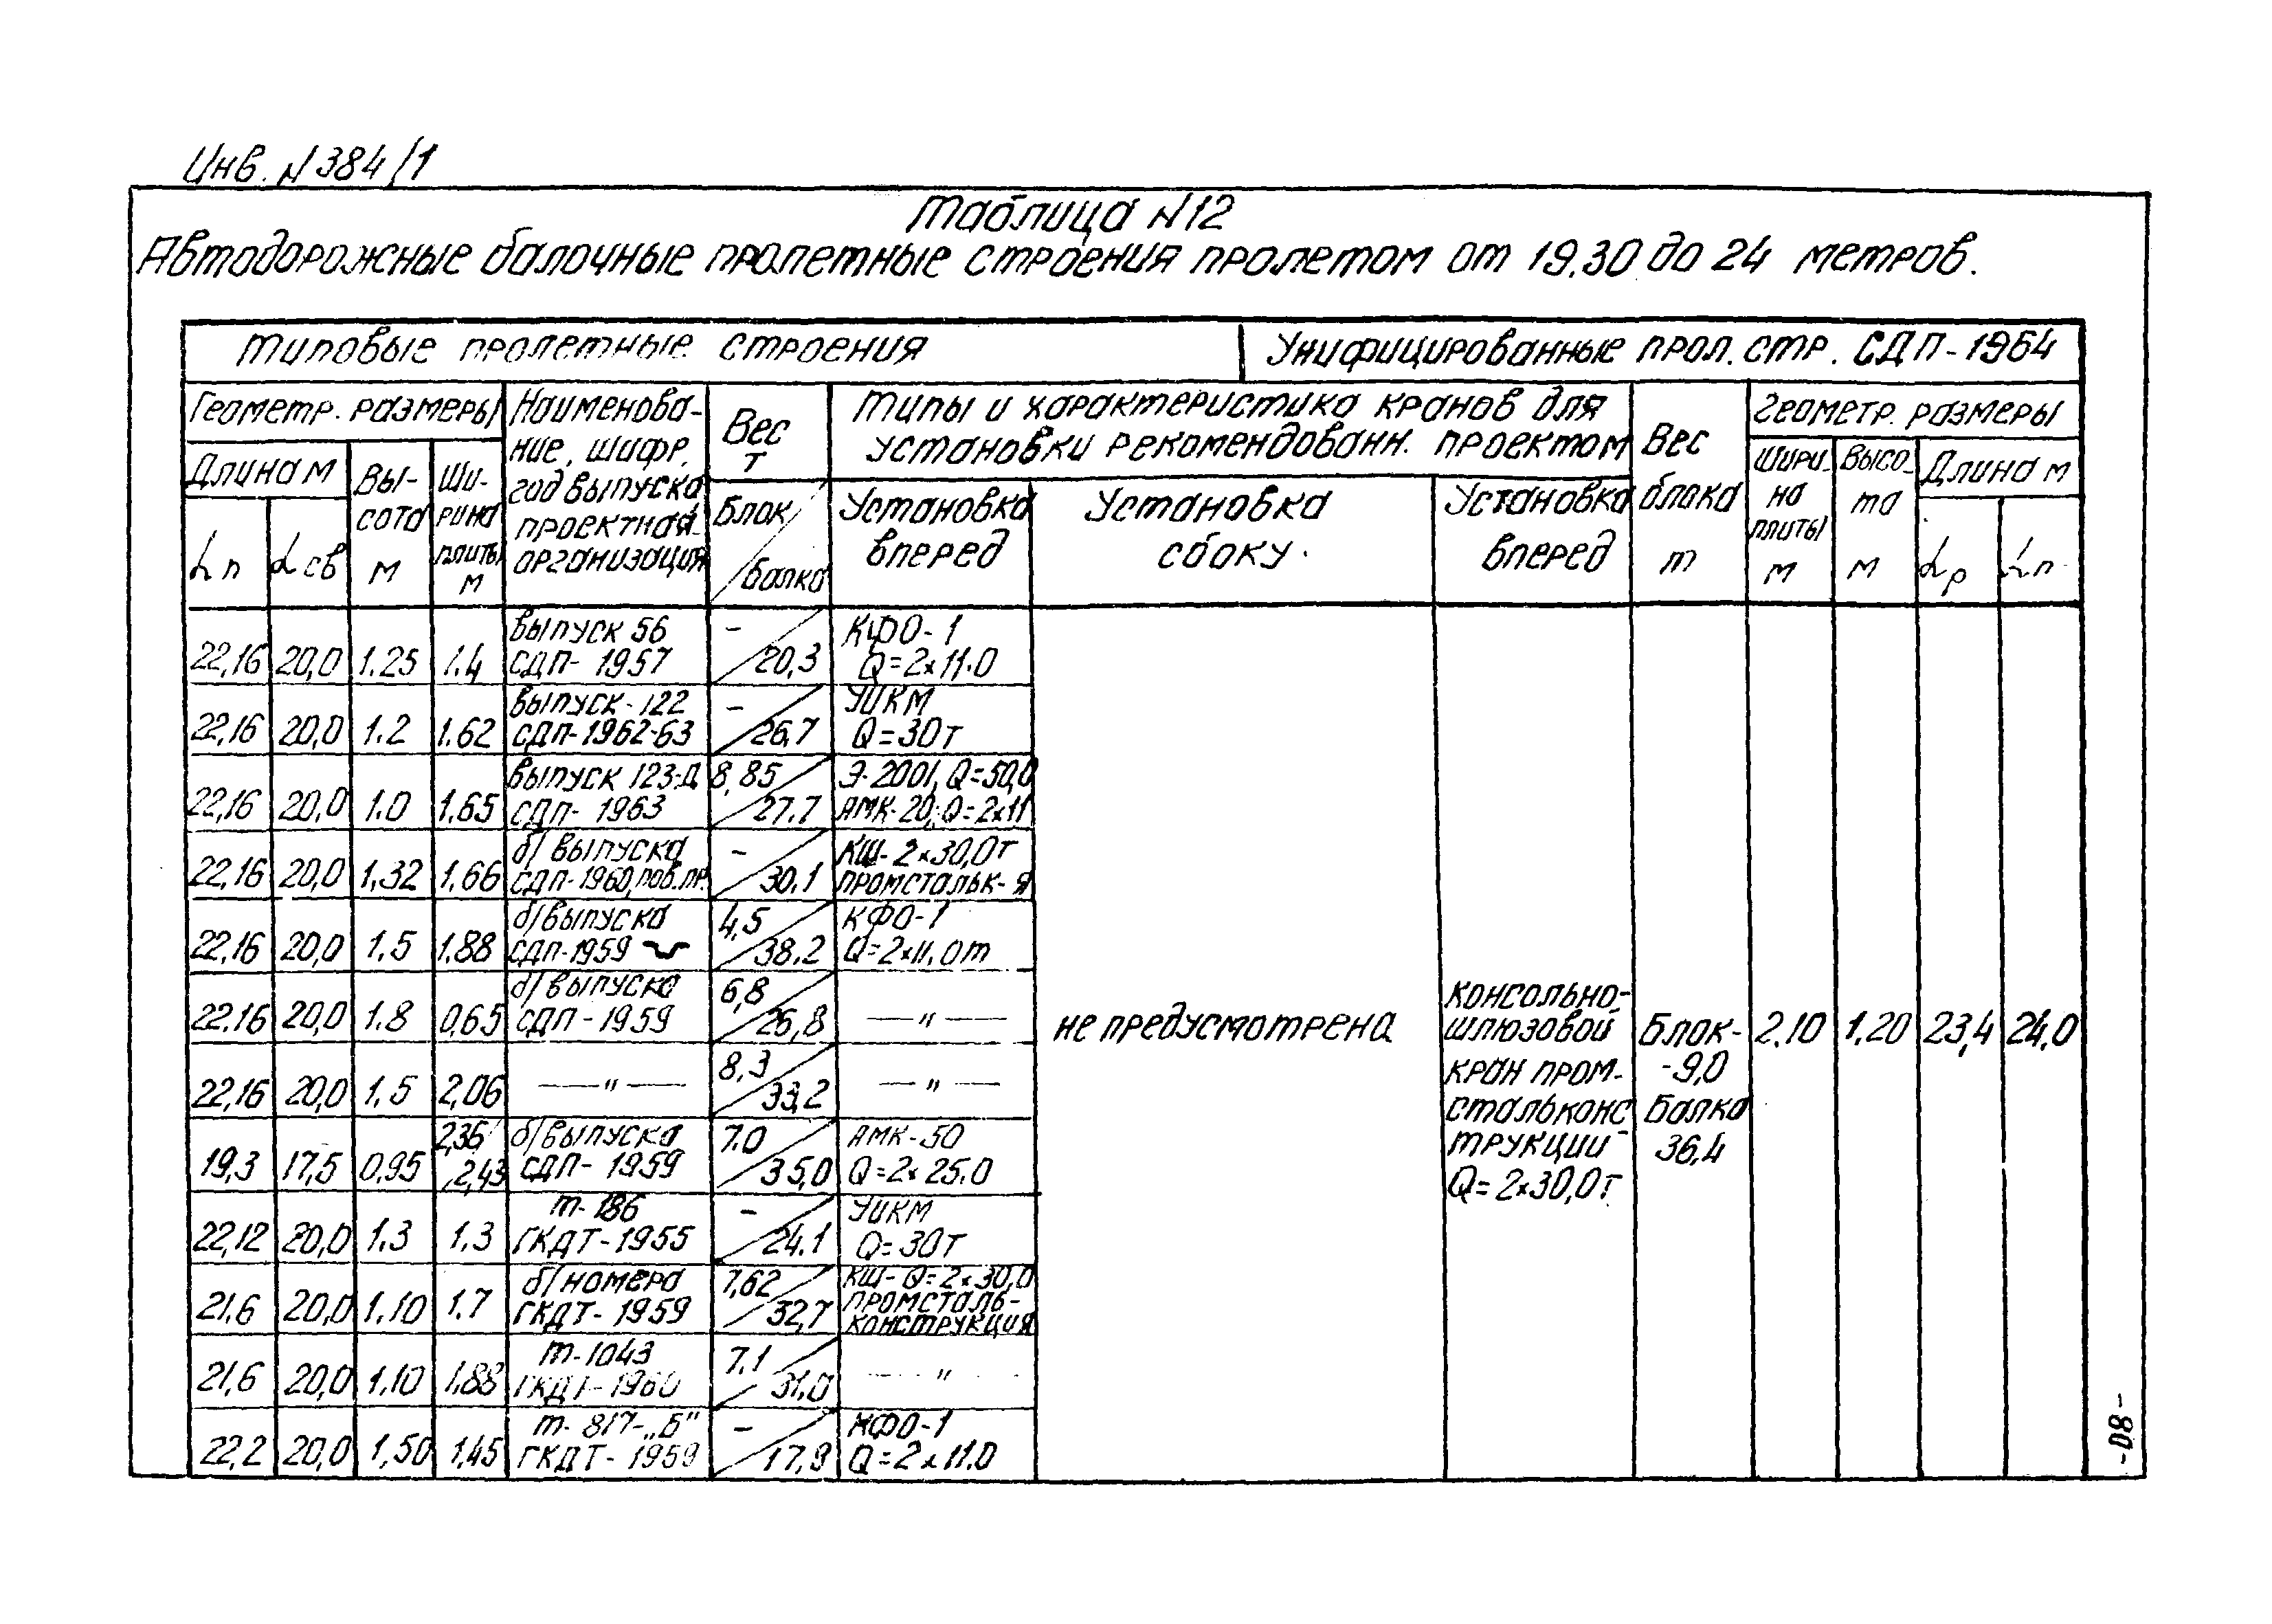 Инв. N384/1
Таблица N12
Автодорожные балочные пролетные строения пролетом от 19.30 до 24 метров.
Типовые пролетные строения
Унифицированные прол. стр. СДП-1964
Геометр. размеры
Длина м
Lп
Lсв
Вы-
сота
м
Ши-
рина
плиты
м
Наименова-
ние, шифр,
год выпуска
проектная
организация
Вес
т
Блок/
/балка
Типы и характеристика кранов для
установки рекомендованн. проектом
Установка
вперед
Установка
сбоку.
Установка
вперед
Вес
блока
т
Геометр. размеры
Шири-
на
плиты
м
Высо-
та
м
Длина м
Lр
Lп
22,16 20,0 1.25 1.4 выпуск 56 СДП- 1957 - / 20,3 КФО-1 Q=2x11.0
22,16 20,0 1.2 1.62 выпуск-122 СДП-1962-63 - / 26,7 УИКМ Q=30т
22,16 20,0 1.0 1.65 выпуск 123-Д СДП- 1963 8,85 / 27.7 Э-2001, Q=50,0 АМК-20; Q=2x11
22,16 20,0 1,32 1,66 б/выпуска СДП-1960, пов.пр. - / 30.1 КШ-2x30,0т Промстальк-я
22,16 20,0 1.5 1.88 б/выпуска СДП-1959 4,5 / 38.2 КФО-1 Q=2x11.0т
22.16 20,0 1.8 0,65 б/выпуска СДП-1959 6,8 / 26,8 —"—
22,16 20,0 1,5 2,06 —"— 8,3 / 33,2 —"—
19,3 17,5 0,95 2,36/2,43 б/выпуска СДП- 1959 7.0 / 35,0 АМК-50 Q=2x25.0
22,12 20,0 1.3 1.3 т-186 ГКДТ-1955 - / 24.1 УИКМ Q=30т
21,6 20,0 1,10 1.7 б/номера ГКДТ-1959 7,62 / 32,7 КШ-Q=2x30,0 Промсталь-конструкция
21,6 20,0 1,10 1,88 т-1043 ГКДТ-1960 7.1 / 31.0 —"—
22,2 20,0 1,50 1,45 т-817-„Б" ГКДТ-1959 - / 17,9 КФО-1 Q=2x11.0
не предусмотрена
Консольно-
шлюзовой
кран пром-
стальконс
трукции
Q=2x30,0т
Блок-
-9,0
Балка
36,4
2.10
1.20
23,4
24.0
-80-